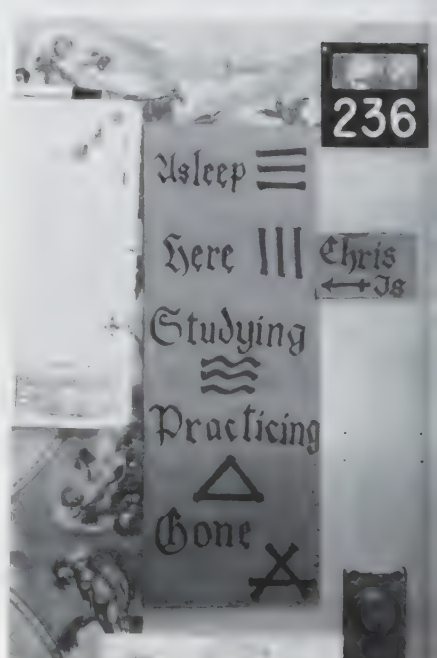 236
Asleep
Here
Chris
Is
Studying
Practicing
Gone